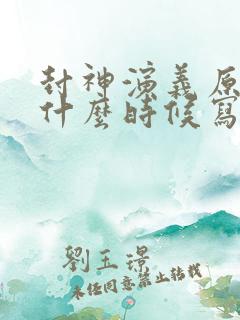 封神演義原
什麼時候寫
劉玉璟
未经同意禁止转载